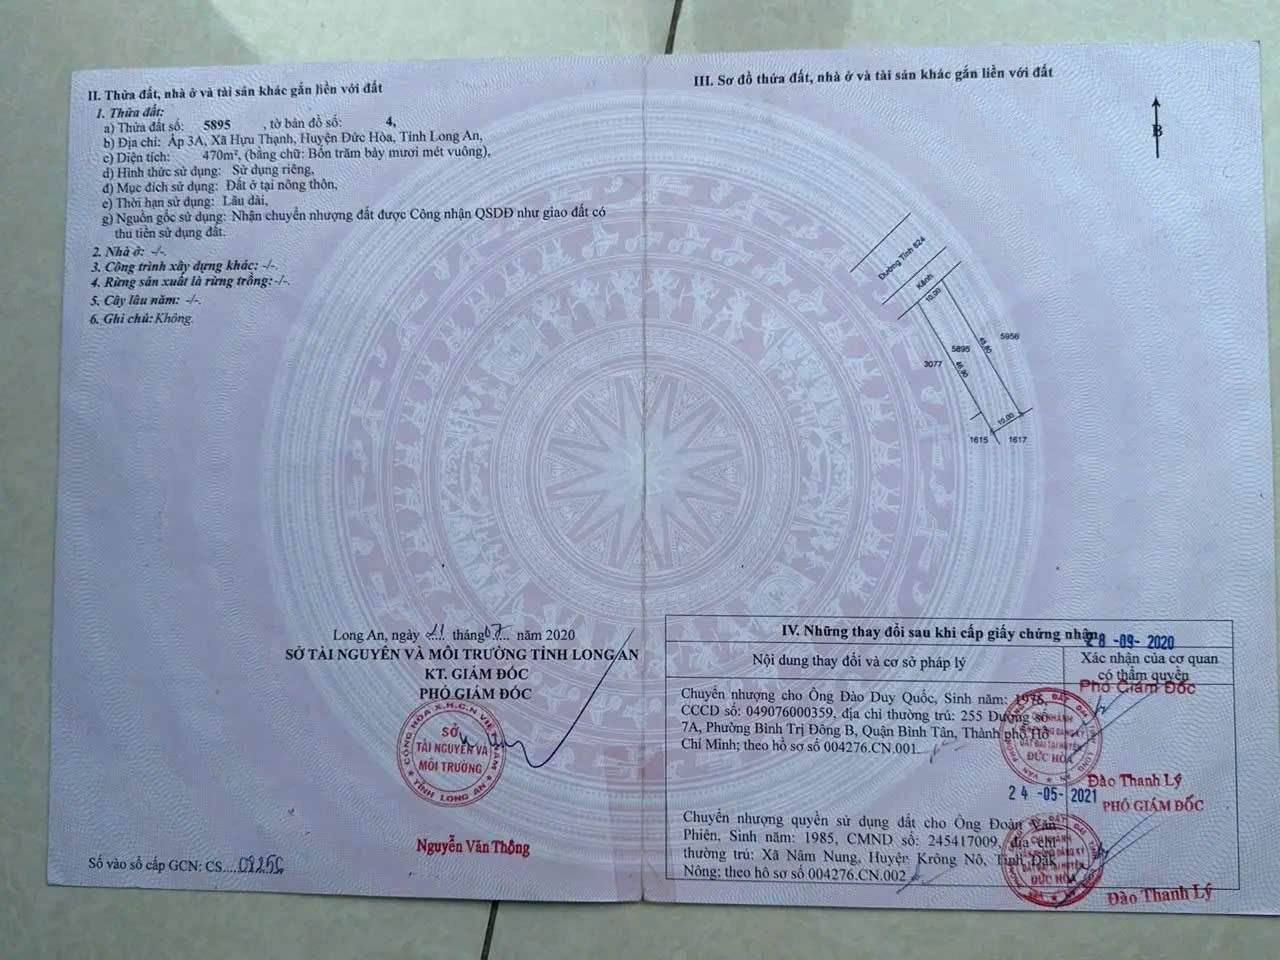 II. Thửa đất, nhà ở và tài sản khác gắn liền với đất
1. Thửa đất:
a) Thửa đất số: 5895 , tờ bản đồ số: 4,
b) Địa chỉ: Ấp 3A, Xã Hựu Thạnh, Huyện Đức Hòa, Tỉnh Long An,
c) Diện tích: 470m², (bằng chữ: Bốn trăm bảy mươi mét vuông),
d) Hình thức sử dụng: Sử dụng riêng,
đ) Mục đích sử dụng: Đất ở tại nông thôn,
e) Thời hạn sử dụng: Lâu dài,
g) Nguồn gốc sử dụng: Nhận chuyển nhượng đất được Công nhận QSDĐ như giao đất có
thu tiền sử dụng đất.
2. Nhà ở: -/-.
3. Công trình xây dựng khác: -/-.
4. Rừng sản xuất là rừng trồng: -/-.
5. Cây lâu năm: -/-.
6. Ghi chú: Không.
Long An, ngày 11 tháng 07 năm 2020
SỞ TÀI NGUYÊN VÀ MÔI TRƯỜNG TỈNH LONG AN
KT. GIÁM ĐỐC
PHÓ GIÁM ĐỐC
CỘNG HÒA X.H.C.N VIỆT NAM
SỞ
TÀI NGUYÊN VÀ
MÔI TRƯỜNG
TỈNH LONG AN
Nguyễn Văn Thông
Số vào sổ cấp GCN: CS....
III. Sơ đồ thửa đất, nhà ở và tài sản khác gắn liền với đất
B
Đường Tỉnh 824
Kênh
10.00
5956
5895
3077
10.00
1615
1617
IV. Những thay đổi sau khi cấp giấy chứng nhận
28-09-2020
Nội dung thay đổi và cơ sở pháp lý
Xác nhận của cơ quan
có thẩm quyền
Phó Giám Đốc
Chuyển nhượng cho Ông Đào Duy Quốc, Sinh năm: 1976,
CCCD số: 049076000359, địa chỉ thường trú: 255 Đường số
7A, Phường Bình Trị Đông B, Quận Bình Tân, Thành phố Hồ
Chí Minh; theo hồ sơ số 004276.CN.001
ĐỨC HÒA
Đào Thanh Lý
24-05-2021
PHÓ GIÁM ĐỐC
Chuyển nhượng quyền sử dụng đất cho Ông Đoàn Văn
Phiên, Sinh năm: 1985, CMND số: 245417009, địa chỉ
thường trú: Xã Nâm Nung, Huyện Krông Nô, Tỉnh Đắk
Nông; theo hồ sơ số 004276.CN.002
ĐỨC HÒA
Đào Thanh Lý